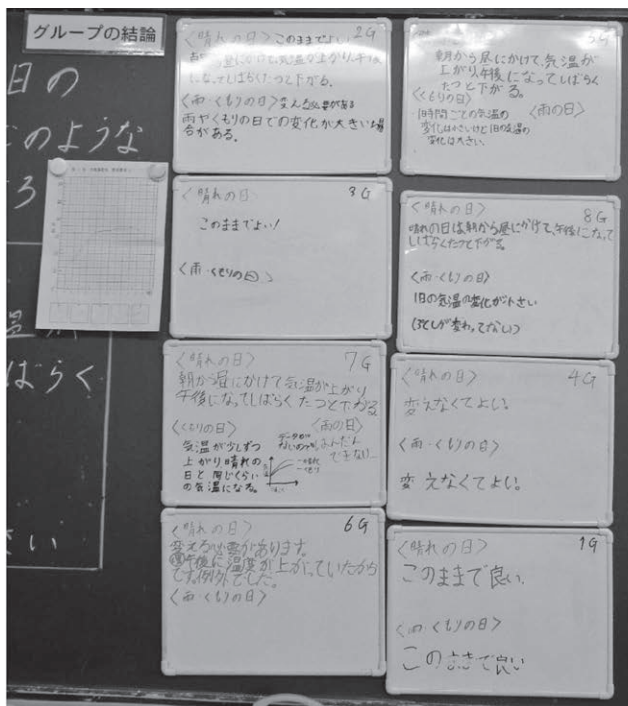 グループの結論
目の
のような
ろ
ばらく
い
2G
〈晴れの日〉このままでよい
昼にかけて、気温が上がり、午後
になってしばらくたつと下がる。
〈雨・くもりの日〉変える必要がある
雨やくもりの日での変化が大きい場
合がある。
5G
朝から昼にかけて、気温が
上がり、午後になってしばらく
たつと下がる。
〈くもりの日〉
〈雨の日〉
1時間ごとの気温の
変化は小さいけど1日の気温の
変化は大きい。
3G
〈晴れの日〉
このままでよい!
〈雨・くもりの日〉
8G
〈晴れの日〉
晴れの日は朝から昼にかけて、午後になって
しばらくたつと下がる。
〈雨・くもりの日〉
1日の気温の変化が小さい
7G
〈晴れの日〉
朝から昼にかけて気温が上がり
午後になってしばらくたつと下がる
〈くもりの日〉
気温が少しずつ
上がり晴れの
日と同じくらい
の気温になる。
〈雨の日〉
データが
ないので
できない
4G
〈晴れの日〉
変えなくてよい。
〈雨・くもりの日〉
変えなくてよい。
6G
〈晴れの日〉
変える必要があります。
午後に温度が上がっていたから
です。例外でした。
〈雨・くもりの日〉
1G
〈晴れの日〉
このままで良い
〈雨・くもりの日〉
このままで良い